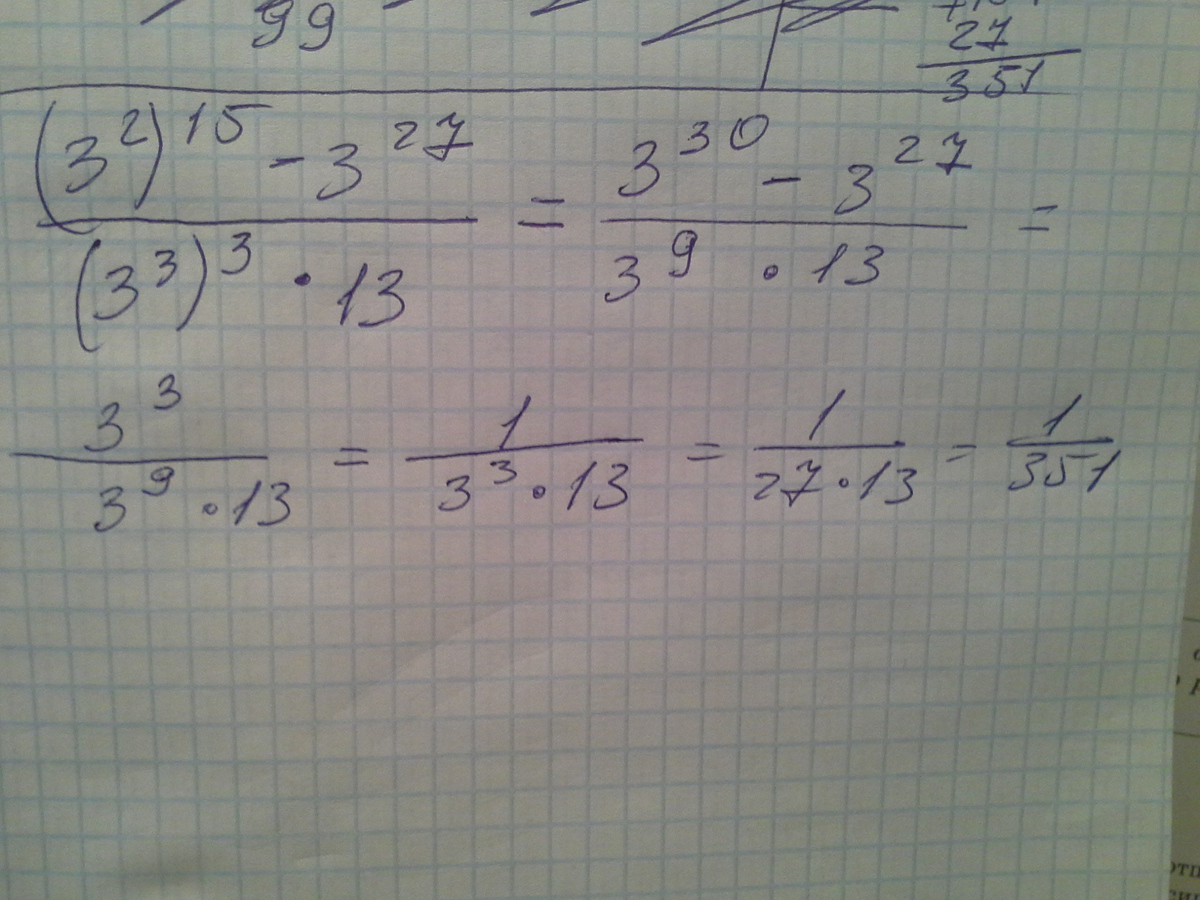 99
27
351
(3²)¹⁵ - 3²⁷ / (3³)³ · 13 = 3³⁰ - 3²⁷ / 3⁹ · 13 =
3³ / 3⁹ · 13 = 1 / 3³ · 13 = 1 / 27 · 13 = 1 / 351